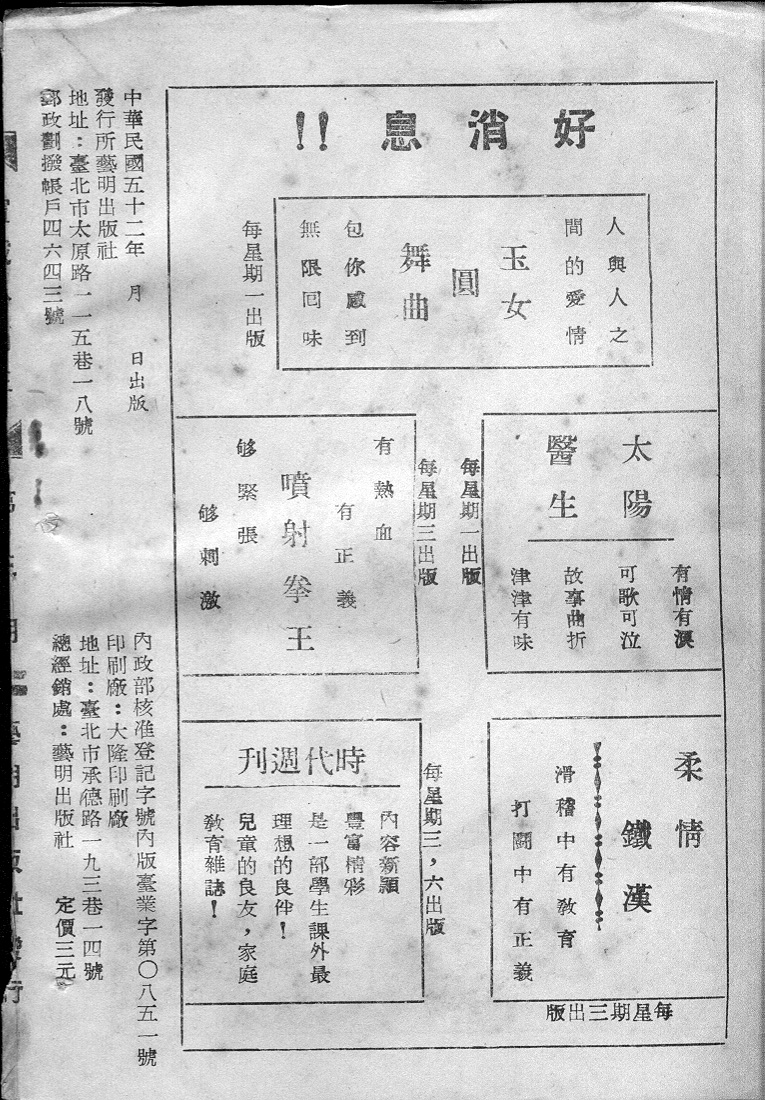 好消息!!
人與人之
間的愛情
玉女
圓
舞曲
包你感到
無限回味
每星期一出版
太陽
醫生
有情有淚
可歌可泣
故事曲折
津津有味
每星期一出版
有熱血
有正義
噴射拳王
够緊張
够刺激
每星期三出版
柔情
鐵漢
滑稽中有教育
打鬪中有正義
每星期三出版
時代週刊
內容新穎
豐富精彩
是一部學生課外最
理想的良伴!
兒童的良友,家庭
教育雜誌!
每星期三,六出版
中華民國五十二年 月 日出版
發行所藝明出版社
地址:臺北市太原路一一五巷一八號
郵政劃撥帳戶四六四三號
內政部核准登記字號內版臺業字第〇八五一號
印刷廠:大隆印刷廠
地址:臺北市承德路一九三巷一四號
總經銷處:藝明出版社 定價三元